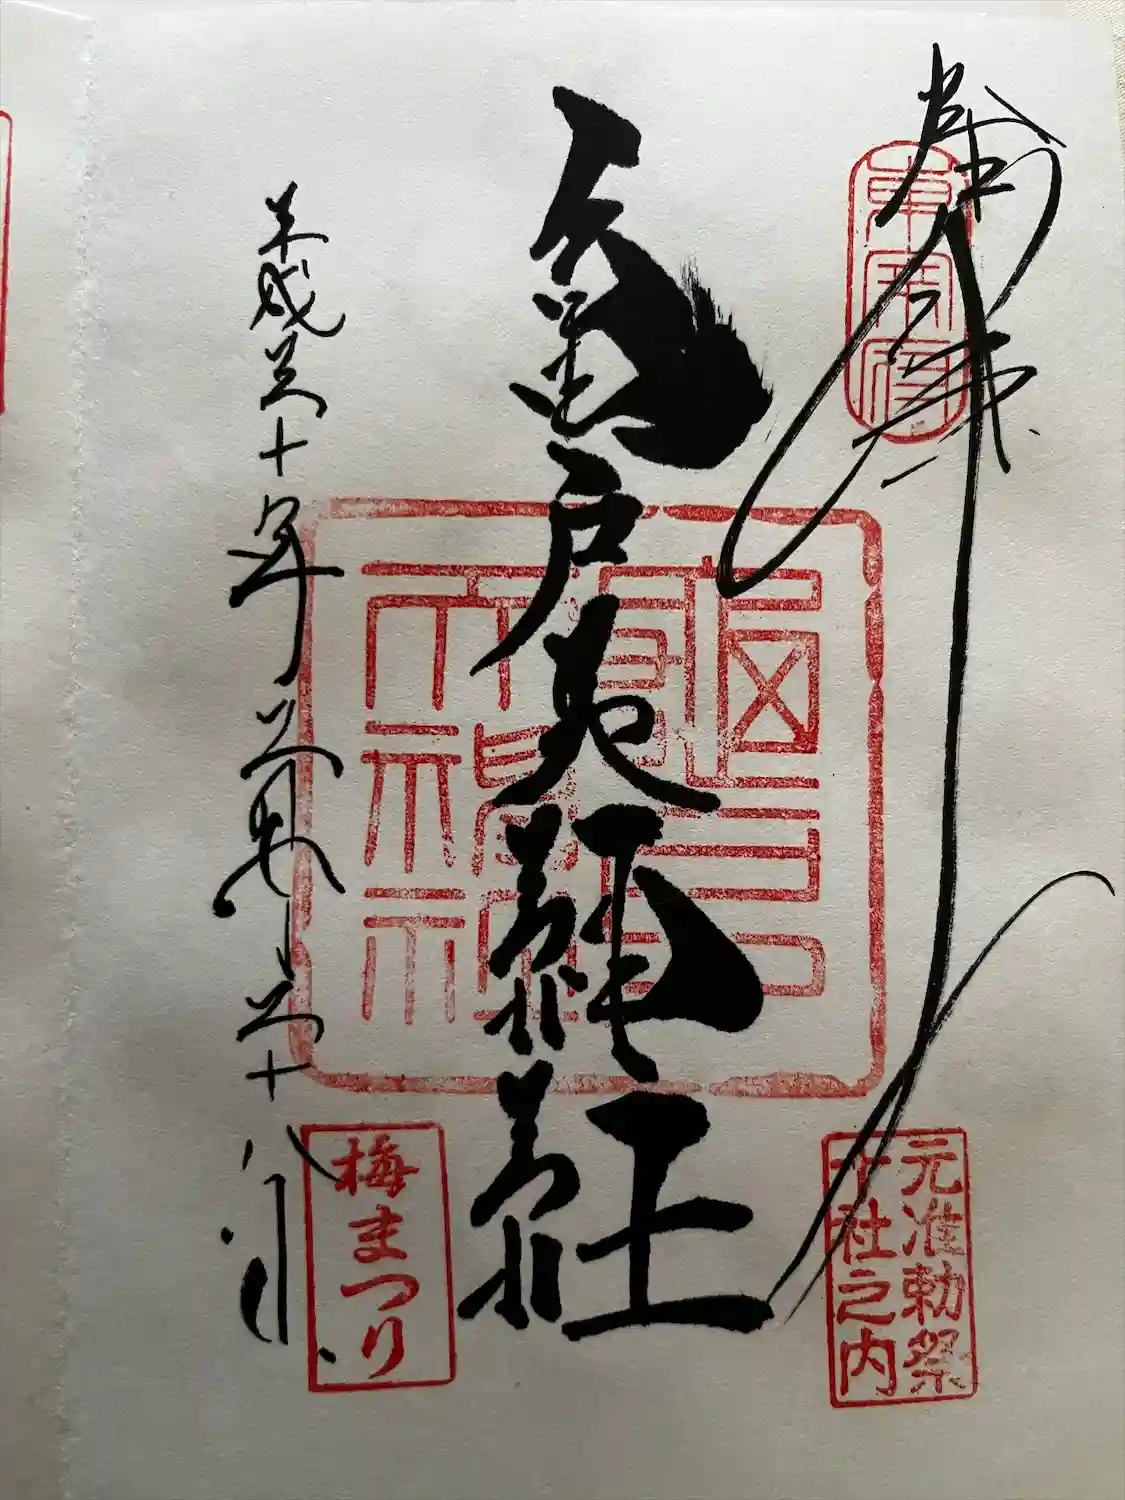 奉拝
東宰府
亀戸天神社
元准勅祭
十社之内
平成三十年二月二十八日
梅まつり